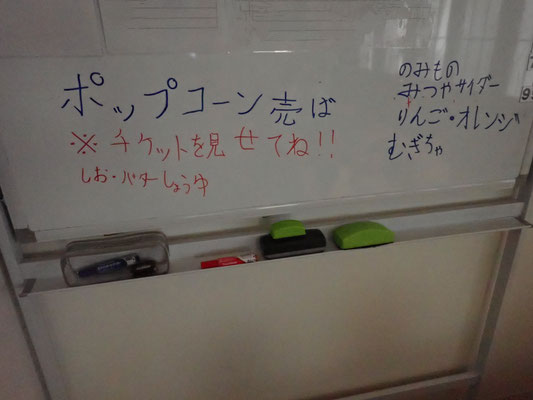 ポップコーン売ば
※チケットを見せてね!!
しお・バターしょうゆ
のみもの
みつやサイダー
りんご・オレンジ
むぎちゃ